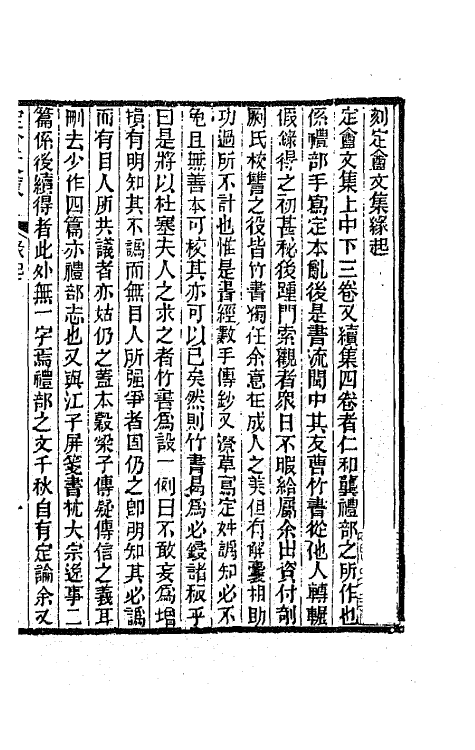 刻定盦文集緣起
定盦文集上中下三卷又續集四卷者仁和龔禮部之所作也
係禮部手寫定本亂後是書流閩中其友曹竹書從他人轉輾
假錄得之初甚秘後踵門索觀者衆日不暇給屬余出資付剞
劂氏校讐之役皆竹書獨任余意在成人之美但有解囊相助
功過所不計也惟是書經數手傳鈔又潦草寫定舛譌知必不
免且無善本可校其亦可以已矣然則竹書曷爲必鋟諸板乎
曰是將以杜塞夫人之求之者竹書爲設一例曰不敢妄爲增
損有明知其不譌而無目人所强爭者固仍之卽明知其必譌
而有目人所共議者亦姑仍之蓋本穀梁子傳疑傳信之義耳
刪去少作四篇亦禮部志也又與江子屏箋書杭大宗逸事二
篇係後續得者此外無一字焉禮部之文千秋自有定論余又